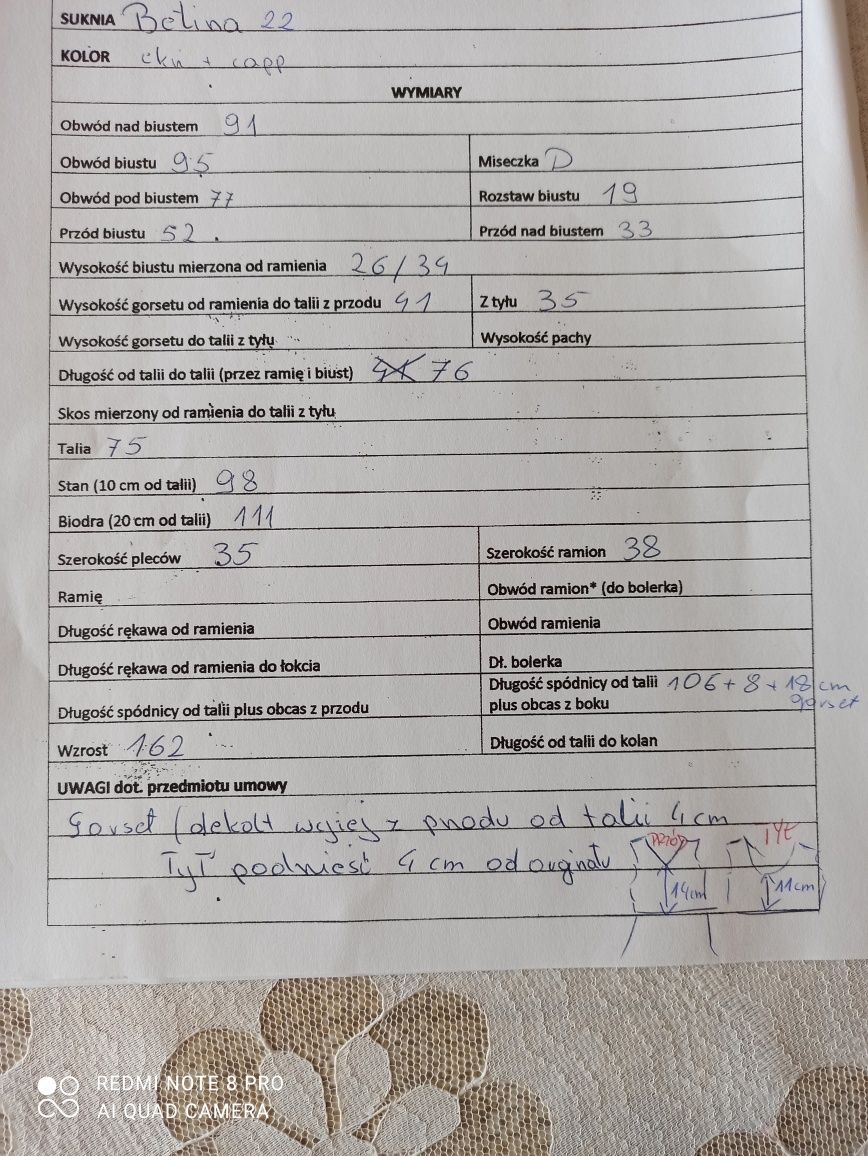 SUKNIA Betina 22
KOLOR ekri + capp
WYMIARY
Obwód nad biustem 91
Obwód biustu 95 Miseczka D
Obwód pod biustem 77 Rozstaw biustu 19
Przód biustu 52 Przód nad biustem 33
Wysokość biustu mierzona od ramienia 26/34
Wysokość gorsetu od ramienia do talii z przodu 41 Z tyłu 35
Wysokość gorsetu do talii z tyłu Wysokość pachy
Długość od talii do talii (przez ramię i biust) 76
Skos mierzony od ramienia do talii z tyłu
Talia 75
Stan (10 cm od talii) 98
Biodra (20 cm od talii) 111
Szerokość pleców 35 Szerokość ramion 38
Ramię Obwód ramion* (do bolerka)
Długość rękawa od ramienia Obwód ramienia
Długość rękawa od ramienia do łokcia Dł. bolerka
Długość spódnicy od talii plus obcas z przodu
Długość spódnicy od talii 106 + 8 + 18 cm
plus obcas z boku gorset
Wzrost 162 Długość od talii do kolan
UWAGI dot. przedmiotu umowy
Gorset (dekolt wyjej z przodu od talii 4 cm
Tył podnieść 4 cm od orginału
PRZÓD TYŁ
14cm 11cm
REDMI NOTE 8 PRO
AI QUAD CAMERA